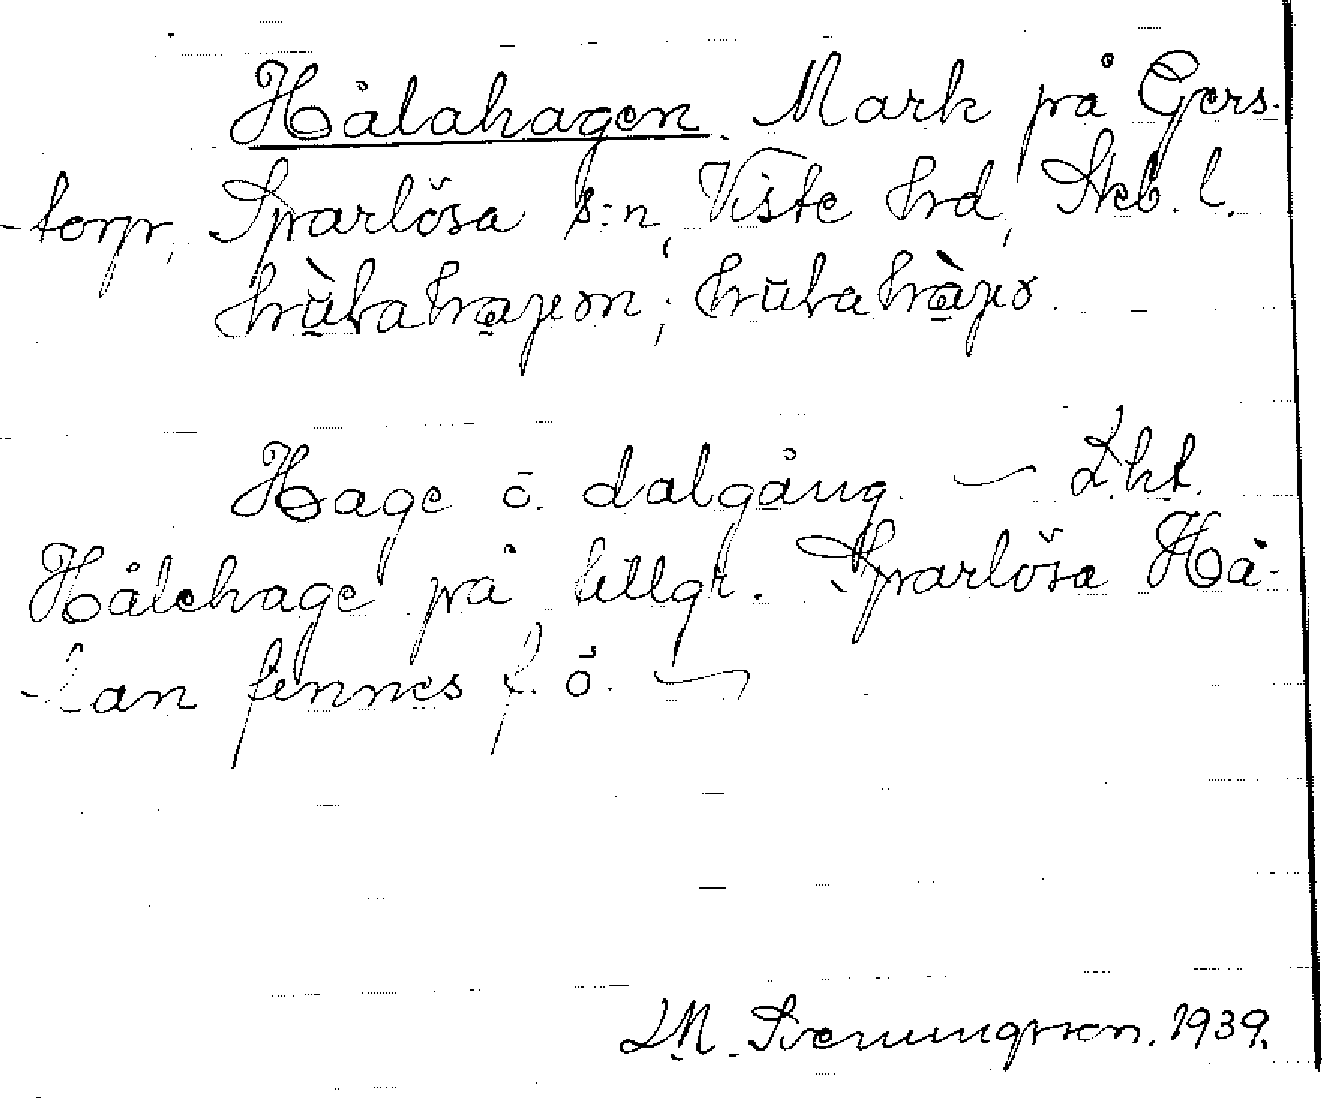 Hålahagen. Mark på Gers-
-torp, Sparlösa s:n, Viste hrd, Skb. l.
Hage o. dalgång. — Lkt.
Hålehage på lillgr. Sparlösa Hå-
-lan finnes f. ö. —
LM. Svenungsson. 1939.